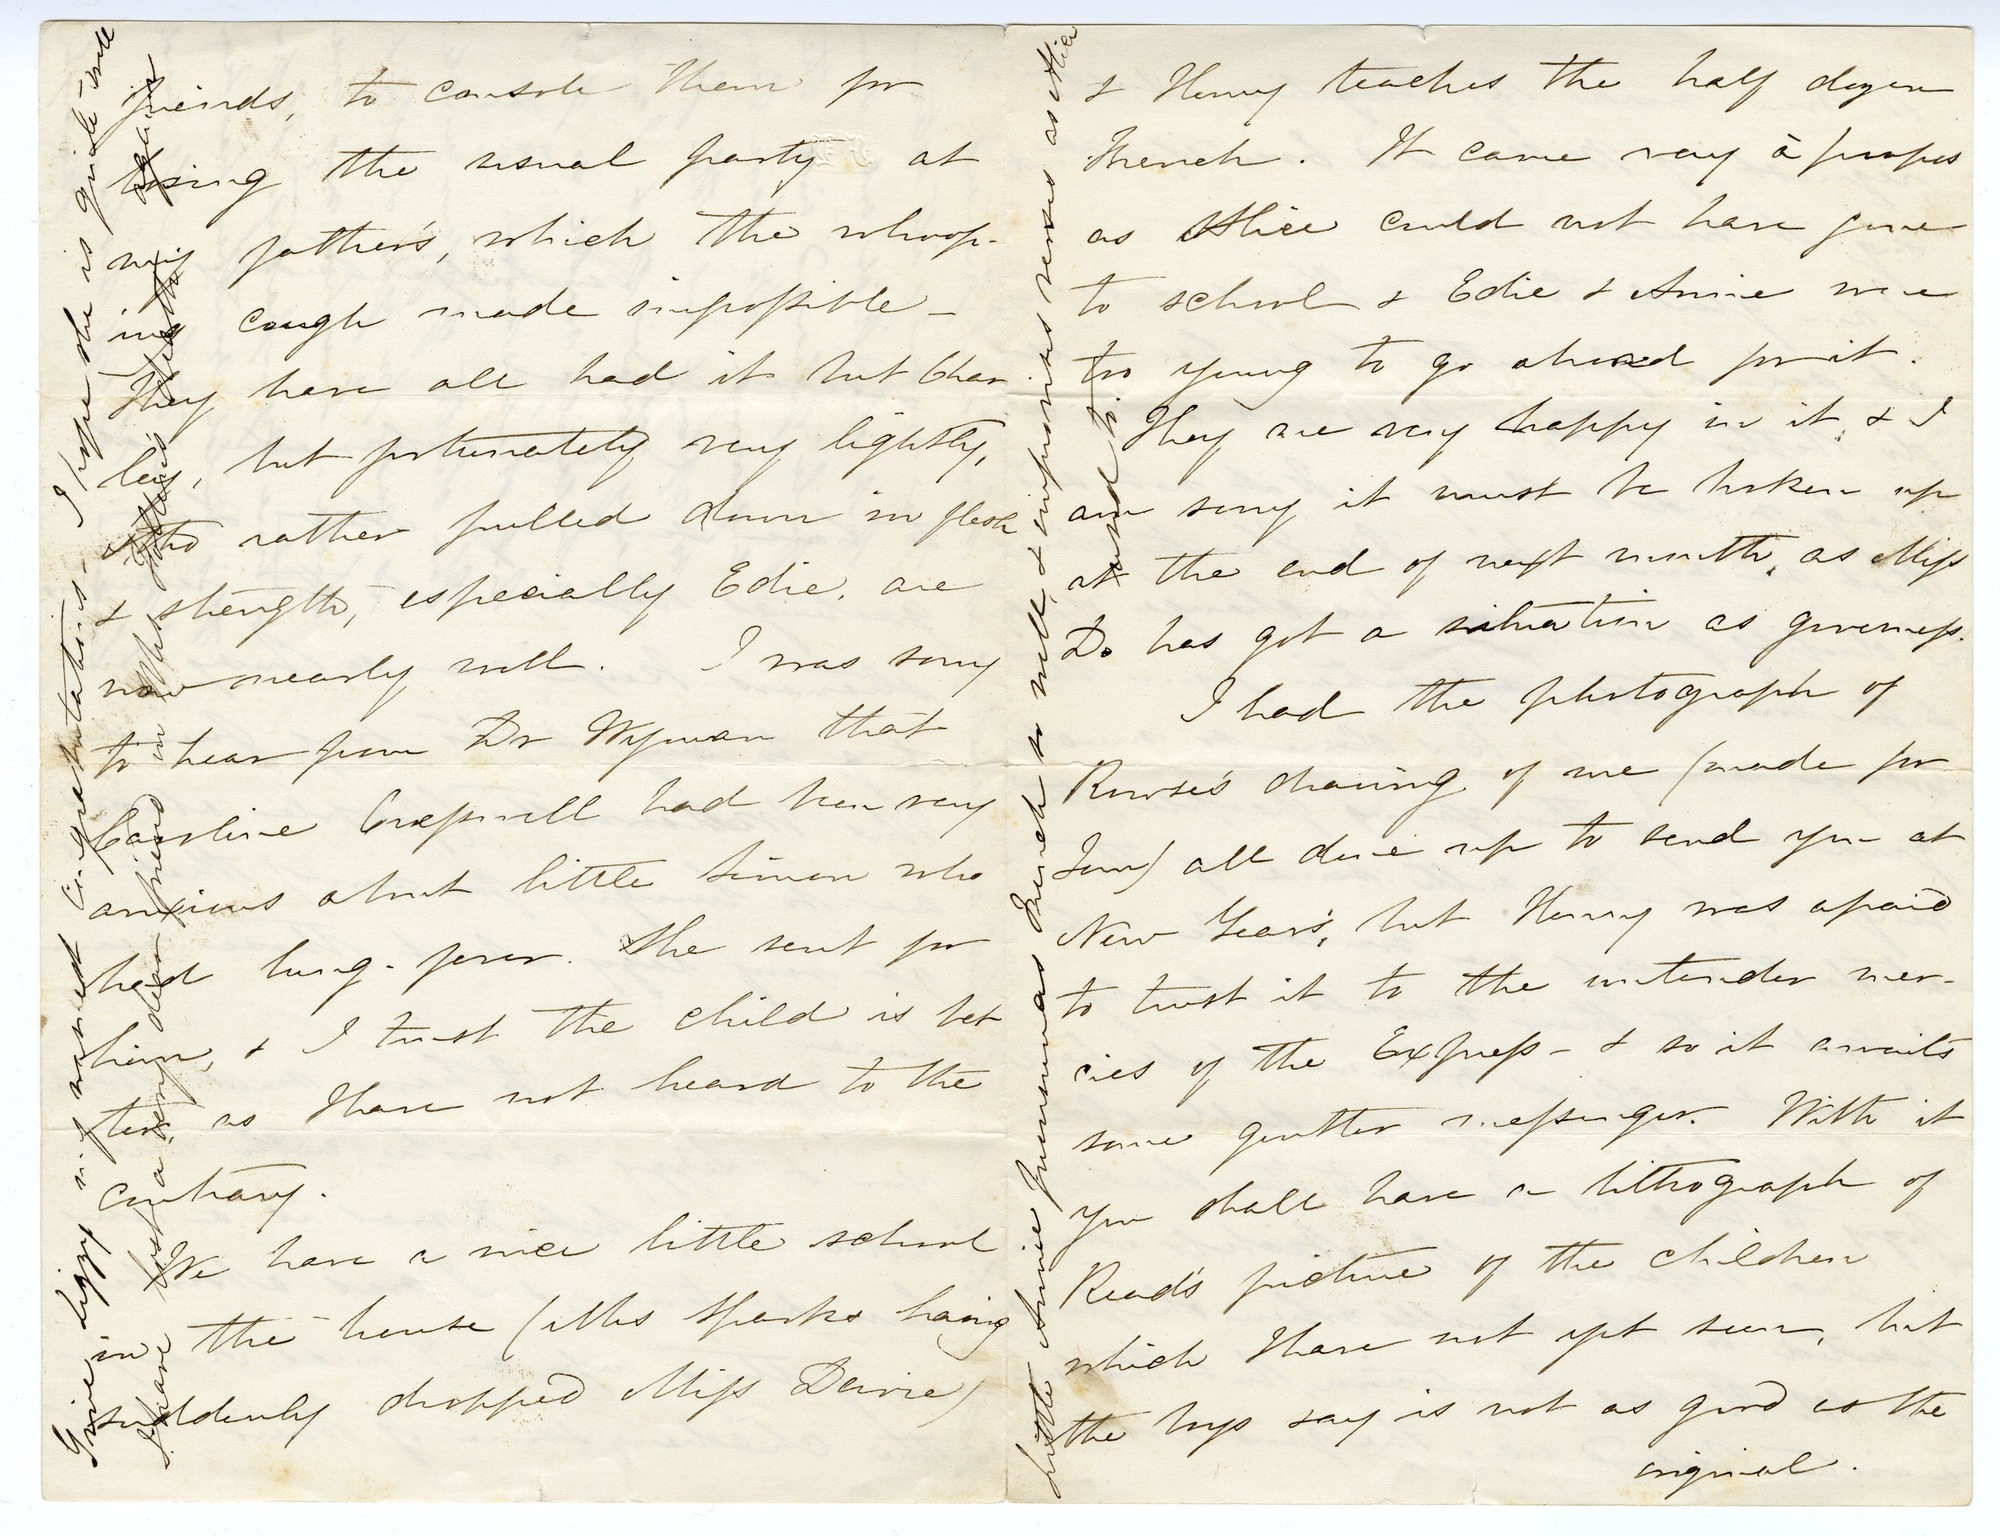 friends, to console them for
losing the usual party at
my father's, which the whoop-
ing cough made impossible -
They have all had it but Char
ley, but fortunately very lightly,
& tho rather pulled down in flesh
& strength, especially Edie, are
now nearly well. I was sorry
to hear from Dr Wyman that
Caroline Cresswell had been very
anxious about little Simon who
had lung-fever. She sent for
him, & I trust the child is bet
ter, as I have not heard to the
contrary.
We have a nice little school
in the house (Mrs Sparks having
suddenly dropped Miss Davie)
& Henry teaches the half dozen
French. It came very à propos
as Alice could not have gone
to school & Edie & Annie were
too young to go abroad for it.
They are very happy in it, & I
am sorry it must be broken up
at the end of next month, as Miss
D. has got a situation as governess.
I had the photograph of
Rowse's drawing of me (made for
Tom) all done up to send you at
New Year's, but Henry was afraid
to trust it to the untender mer-
cies of the Express - & so it awaits
some gentler messenger. With it
you shall have a lithograph of
Read's picture of the children
which I have not yet seen, but
the boys say is not as good as the
original.
Give Lizzy my warmest congratulations - I hope she is quite well
I have lost a very dear friend in
Little Annie pronounces French so well, & improvises verses as Alice
used to.